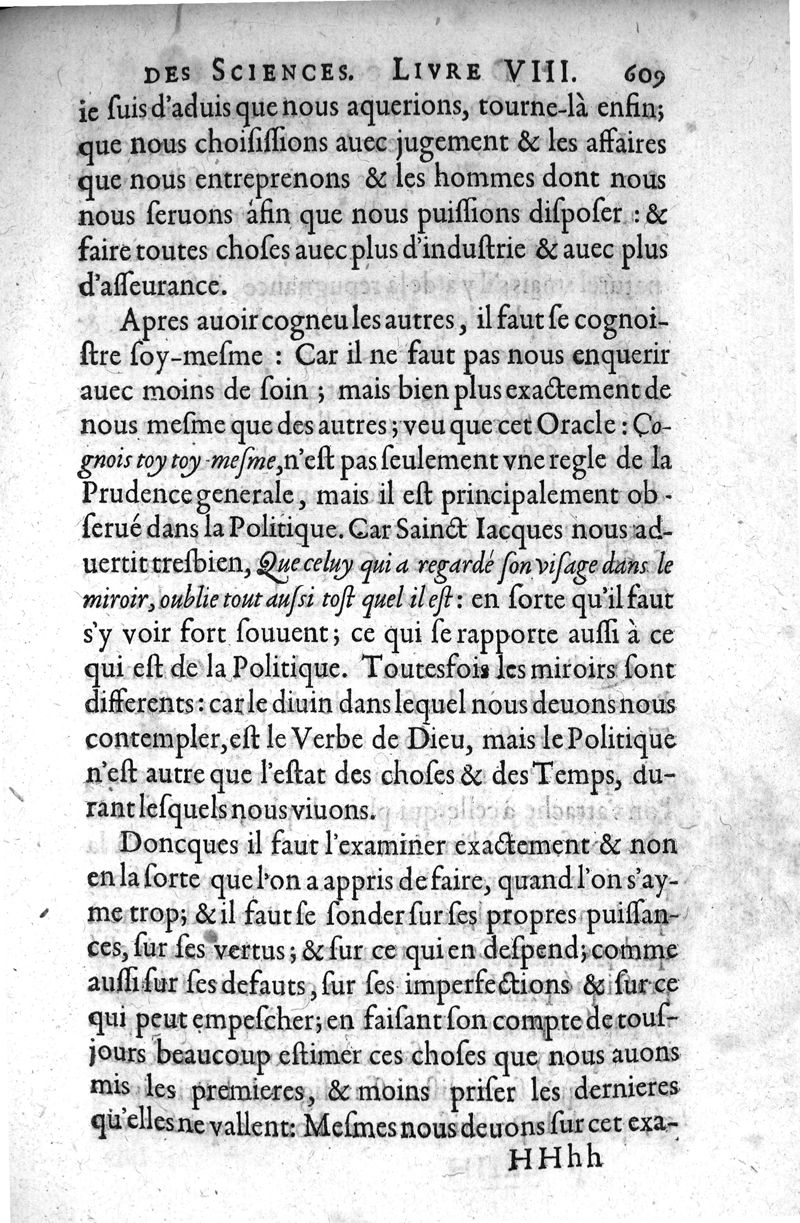 DES SCIENCES. LIVRE VIII. 609
ie ſuis d'aduis que nous aquerions, tourne-là enfin;
que nous choiſiſſions auec jugement & les affaires
que nous entreprenons & les hommes dont nous
nous ſeruons áfin que nous puiſſions diſpoſer : &
faire toutes choſes auec plus d'induſtrie & auec plus
d'aſſeurance.
Apres auoir cogneu les autres, il faut ſe cognoi-
ſtre ſoy-meſme : Car il ne faut pas nous enquerir
auec moins de ſoin ; mais bien plus exactement de
nous meſme que des autres ; veu que cet Oracle : Co-
gnois toy toy-meſme, n'eſt pas ſeulement vne regle de la
Prudence generale, mais il eſt principalement ob-
ſerué dans la Politique. Car Sainct Iacques nous ad-
uertit tresbien, Que celuy qui a regardé ſon viſage dans le
miroir, oublie tout auſsi toſt quel il eſt : en ſorte qu'il faut
s'y voir fort ſouuent ; ce qui ſe rapporte auſſi à ce
qui eſt de la Politique. Toutesfois les miroirs ſont
differents : car le diuin dans lequel nous deuons nous
contempler, eſt le Verbe de Dieu, mais le Politique
n'eſt autre que l'eſtat des choſes & des Temps, du-
rant leſquels nous viuons.
Doncques il faut l'examiner exactement & non
en la ſorte que l'on a appris de faire, quand l'on s'ay-
me trop ; & il faut ſe ſonder ſur ſes propres puiſſan-
ces, ſur ſes vertus ; & ſur ce qui en deſpend ; comme
auſſi ſur ſes defauts, ſur ſes imperfections & ſur ce
qui peut empeſcher ; en faiſant ſon compte de touſ-
jours beaucoup eſtimer ces choſes que nous auons
mis les premieres, & moins priſer les dernieres
qu'elles ne vallent : Meſmes nous deuons ſur cet exa-
HHhh